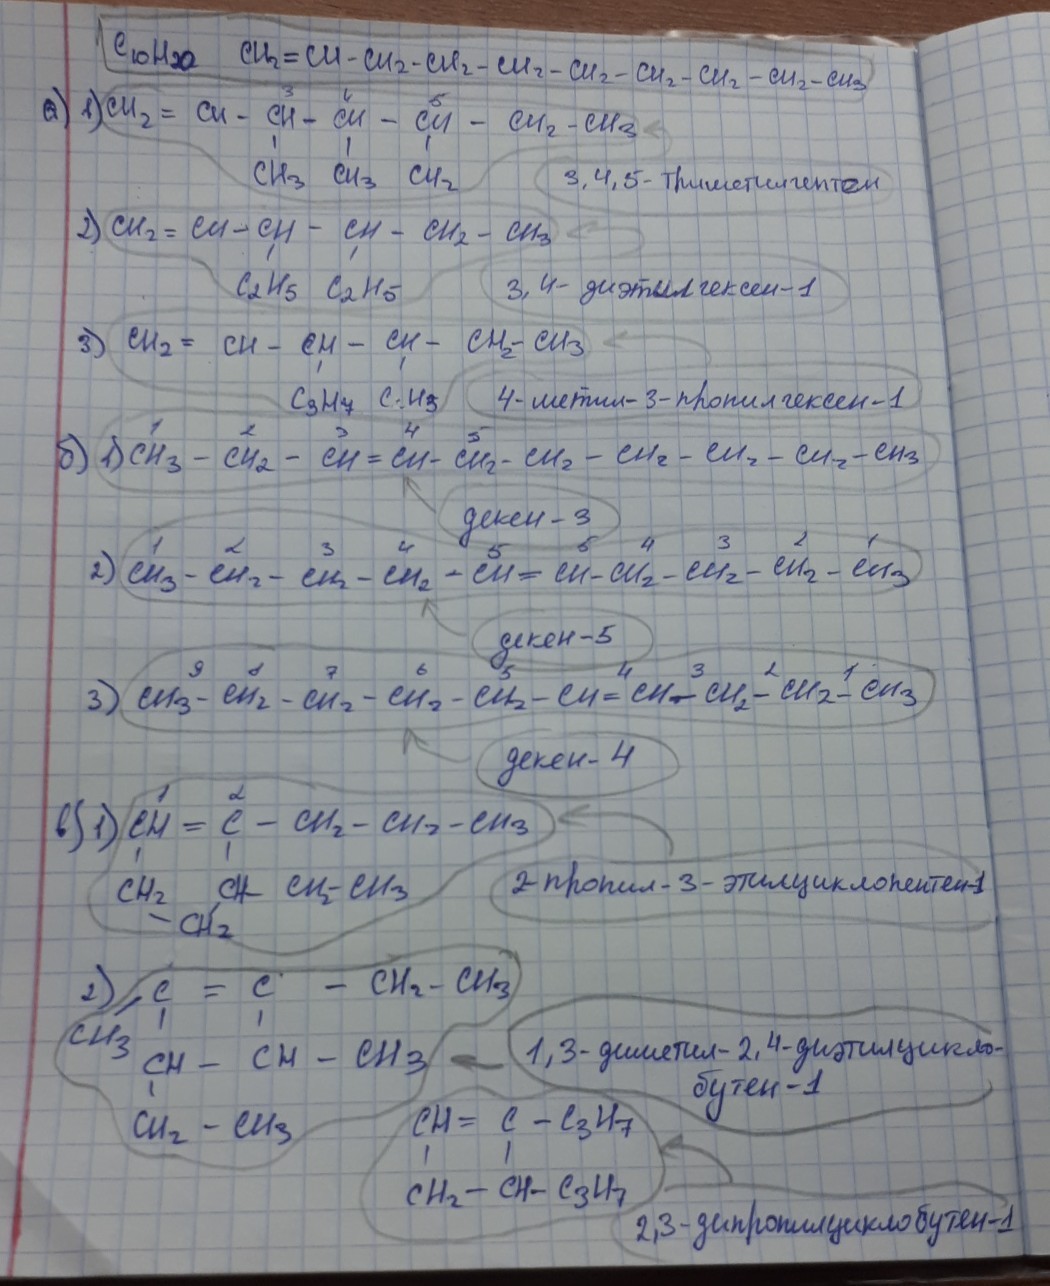 C10H20 CH2=CH-CH2-CH2-CH2-CH2-CH2-CH2-CH2-CH3
а) 1) CH2 = CH - CH - CH - CH - CH2 - CH3
3 4 5
CH3 CH3 CH2
3,4,5-триметилгептен
2) CH2 = CH - CH - CH - CH2 - CH3
C2H5 C2H5
3,4-диэтилгексен-1
3) CH2 = CH - CH - CH - CH2 - CH3
C3H7 C H3
4-метил-3-пропилгексен-1
1 2 3 4 5
б) 1) CH3 - CH2 - CH = CH - CH2 - CH2 - CH2 - CH2 - CH2 - CH3
декен-3
1 2 3 4 5 5 4 3 2 1
2) CH3 - CH2 - CH2 - CH2 - CH = CH - CH2 - CH2 - CH2 - CH3
декен-5
9 8 7 6 5 4 3 2 1
3) CH3 - CH2 - CH2 - CH2 - CH2 - CH = CH - CH2 - CH2 - CH3
декен-4
1 2
в) 1) CH = C - CH2 - CH2 - CH3
CH2 CH CH2 - CH3
- CH2
2-пропил-3-этилциклопентен-1
2) C = C - CH2 - CH3
CH3
CH - CH - CH3
CH2 - CH3
1,3-диметил-2,4-диэтилцикло-
бутен-1
CH = C - C3H7
CH2 - CH - C3H7
2,3-дипропилциклобутен-1